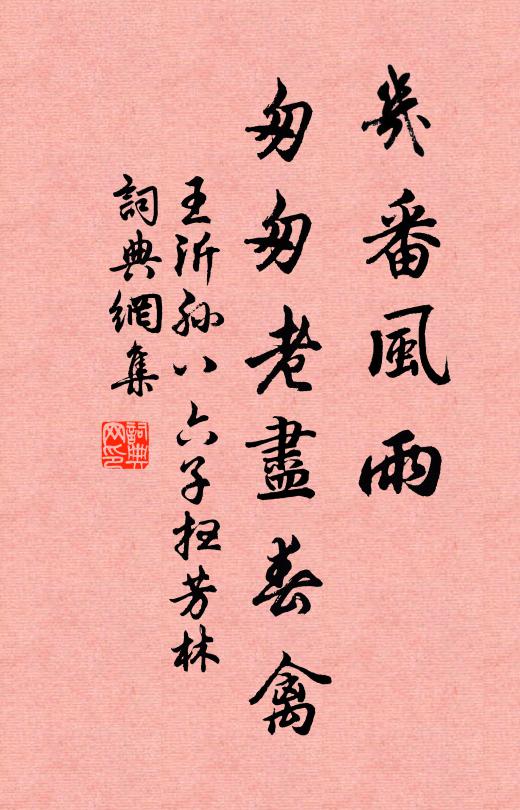 幾番風雨
匆匆老盡春禽
王沂孫八六子掃芳林
詞典網集
詞典
网印